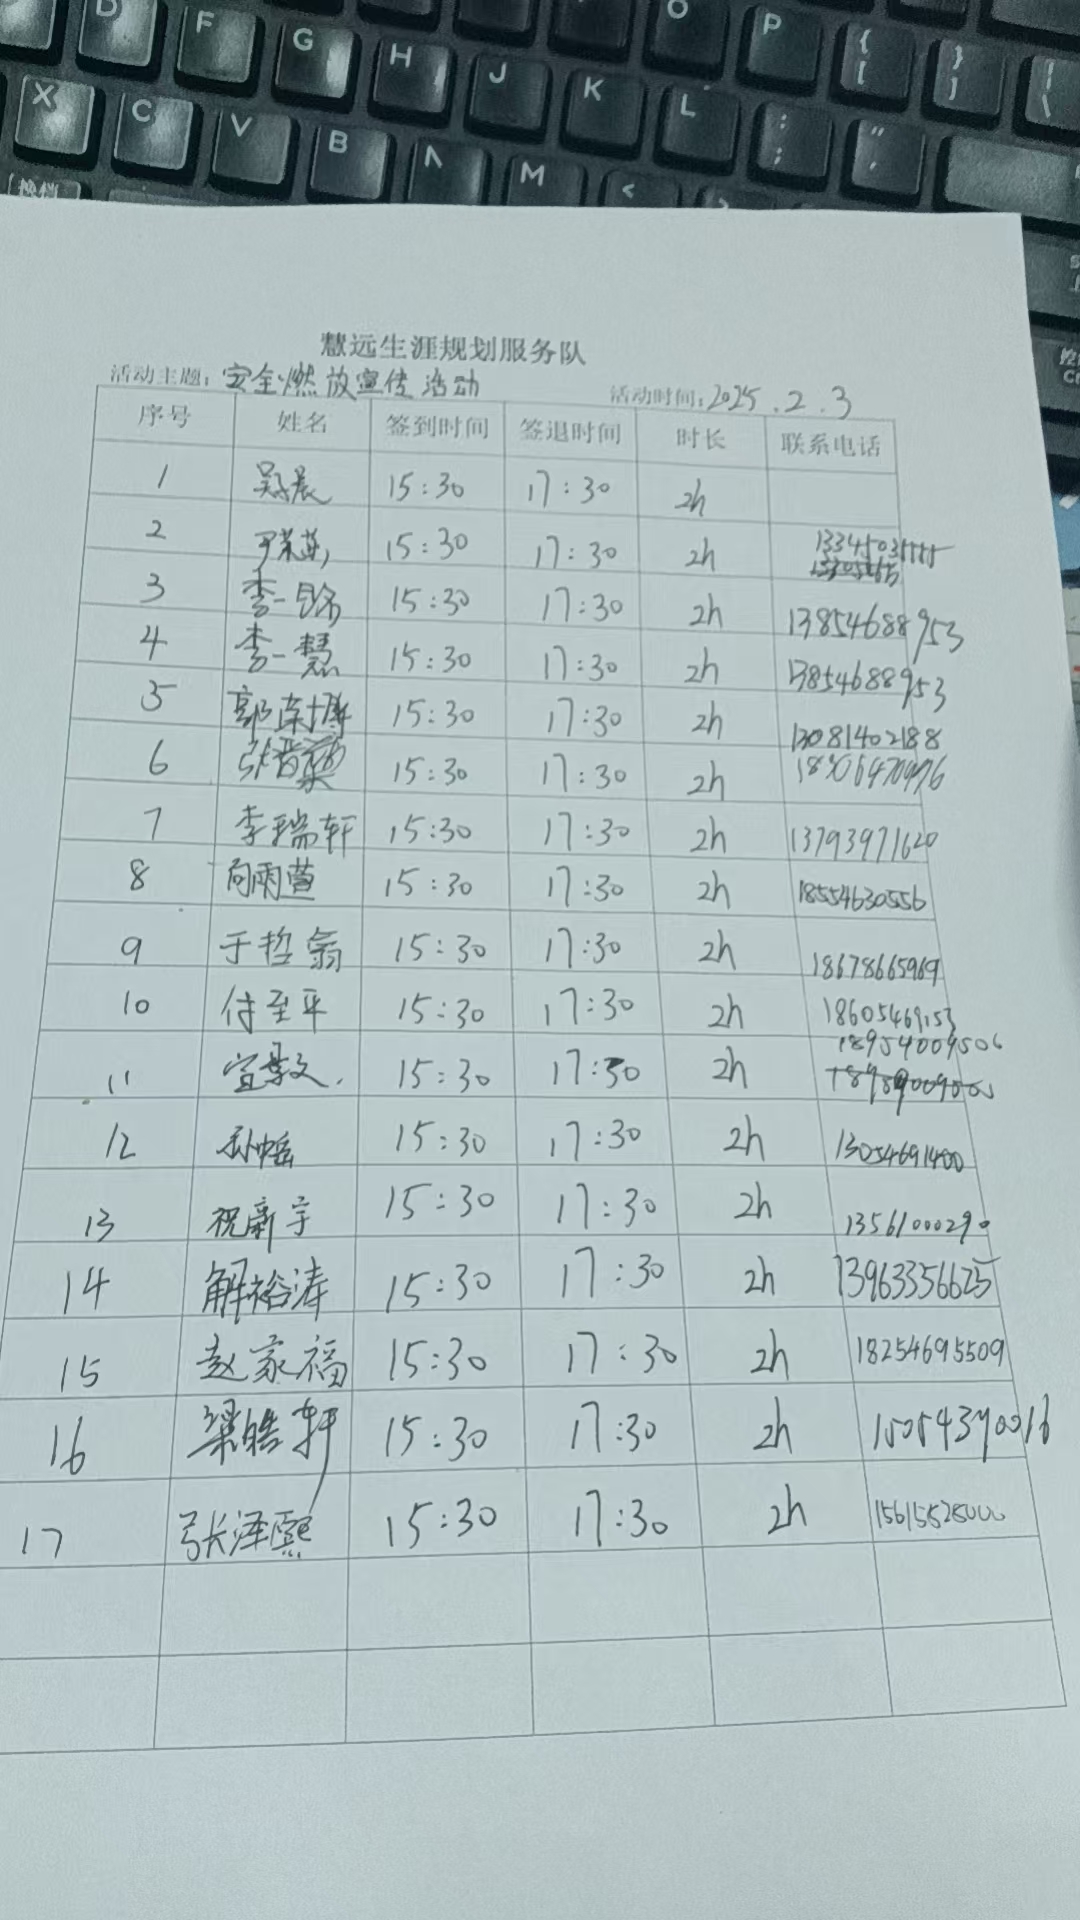 D F G H J K L O P { [ } ] | \
X C V B N M < : ; " '
换档
慧远生涯规划服务队
活动主题: 安全燃放宣传活动 活动时间: 2025.2.3
序号 姓名 签到时间 签退时间 时长 联系电话
1 15:30 17:30 2h
2 15:30 17:30 2h
3 李一锦 15:30 17:30 2h 13854688953
4 李一慧 15:30 17:30 2h 13854688953
5 15:30 17:30 2h 13081402188
6 15:30 17:30 2h
7 李瑞轩 15:30 17:30 2h 13793971620
8 向雨萱 15:30 17:30 2h 18554630556
9 于哲翕 15:30 17:30 2h 18678665969
10 付至平 15:30 17:30 2h 18605469153
11 15:30 17:30 2h 18954009506
12 15:30 17:30 2h 13054691400
13 祝新宇 15:30 17:30 2h 13561000290
14 解裕涛 15:30 17:30 2h 13963356625
15 赵家福 15:30 17:30 2h 18254695509
16 梁皓轩 15:30 17:30 2h 15054370016
17 张泽熙 15:30 17:30 2h 15615525000